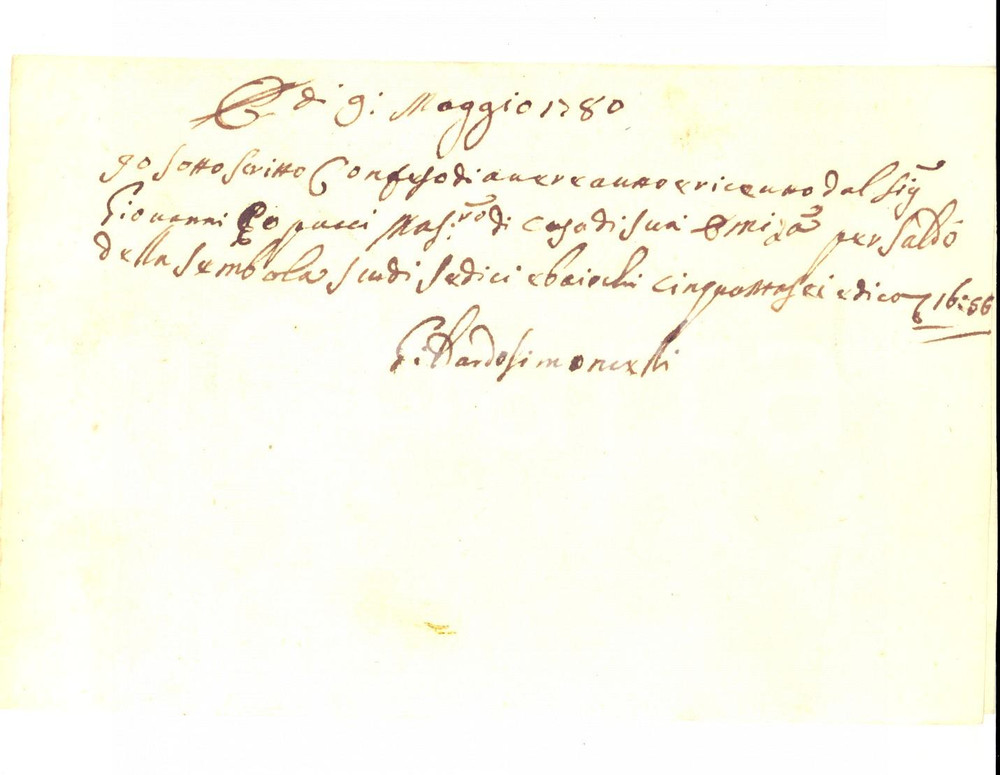 E di 9: Maggio 1780
Io sotto scritto Confeso di avere auto e riceuuto dal Sig.r
Giovanni Popucci Mas.ro di Casa di Sua Emi.za per Saldo
della Sembola Scudi Sedici e baiochi cinquantasei e dico 16:56
Simoncelli